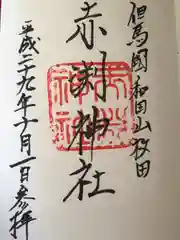 但馬國和田山枚田
赤渕神社
平成二十九年十月一日参拝